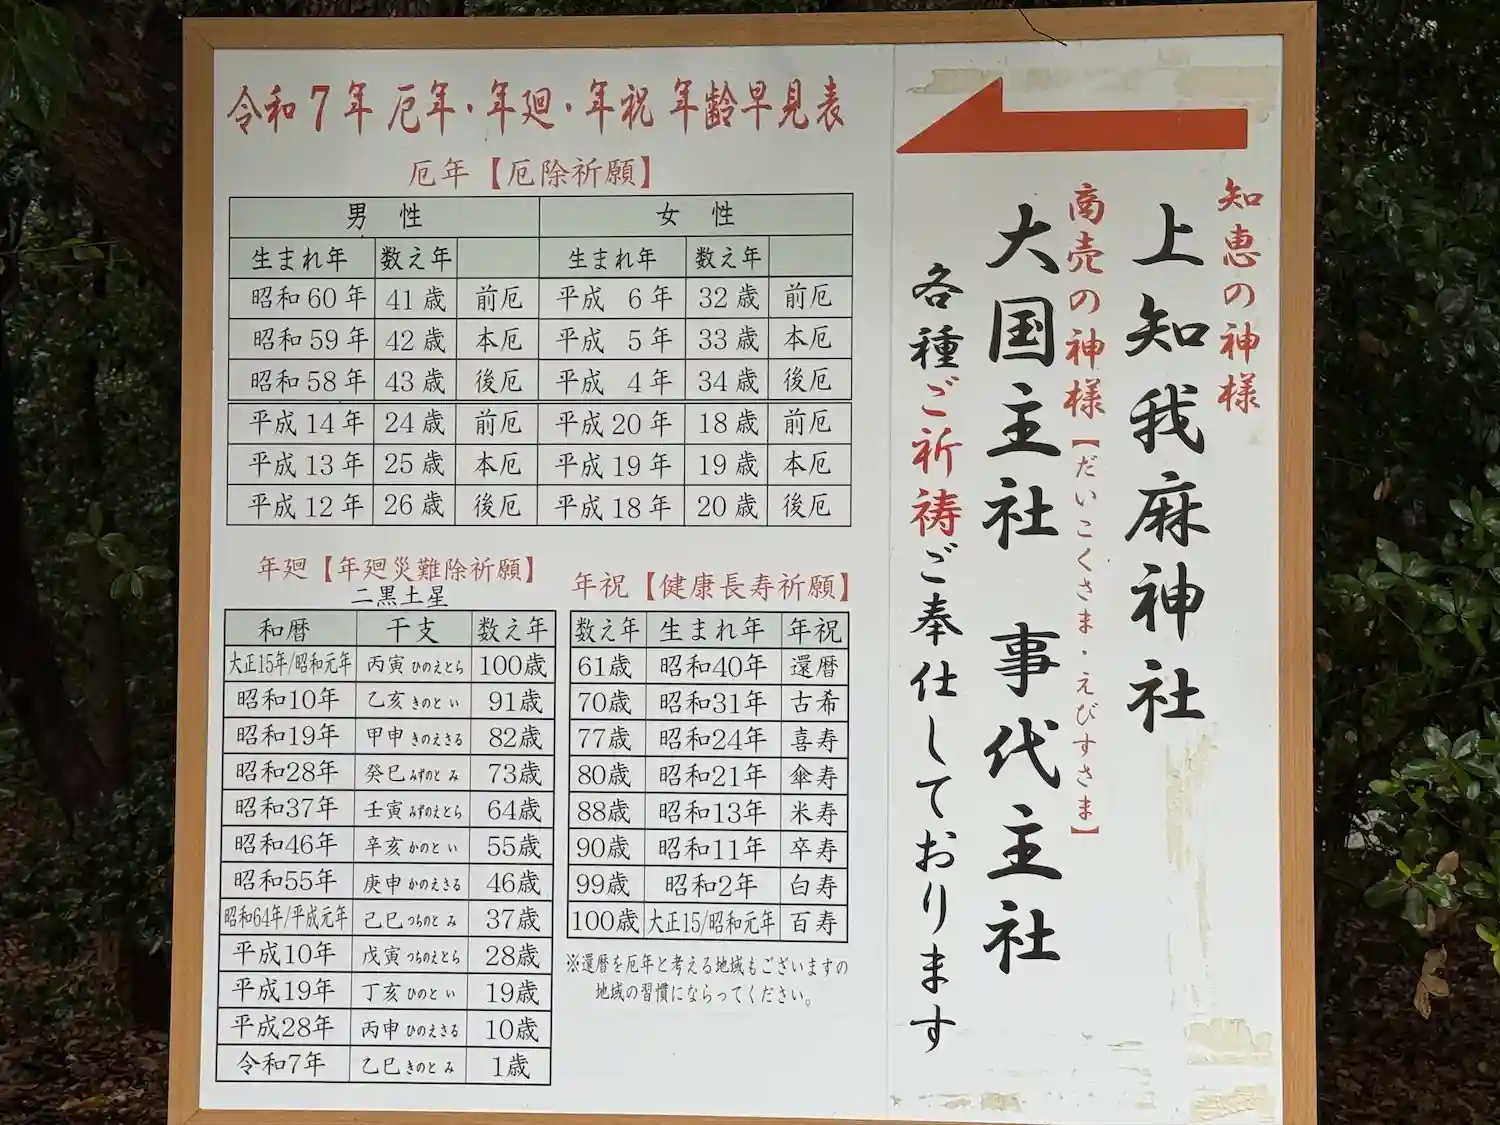 知恵の神様
上知我麻神社
商売の神様【だいこくさま・えびすさま】
大国主社 事代主社
各種ご祈祷ご奉仕しております
令和7年 厄年・年廻・年祝 年齢早見表
厄年【厄除祈願】
男 性 女 性
生まれ年 数え年 生まれ年 数え年
昭和60年 41歳 前厄 平成 6年 32歳 前厄
昭和59年 42歳 本厄 平成 5年 33歳 本厄
昭和58年 43歳 後厄 平成 4年 34歳 後厄
平成14年 24歳 前厄 平成20年 18歳 前厄
平成13年 25歳 本厄 平成19年 19歳 本厄
平成12年 26歳 後厄 平成18年 20歳 後厄
年廻【年廻災難除祈願】
二黒土星
和暦 干支 数え年
大正15年/昭和元年 丙寅 ひのえとら 100歳
昭和10年 乙亥 きのと い 91歳
昭和19年 甲申 きのえさる 82歳
昭和28年 癸巳 みずのと み 73歳
昭和37年 壬寅 みずのえとら 64歳
昭和46年 辛亥 かのと い 55歳
昭和55年 庚申 かのえさる 46歳
昭和64年/平成元年 己巳 つちのと み 37歳
平成10年 戊寅 つちのえとら 28歳
平成19年 丁亥 ひのと い 19歳
平成28年 丙申 ひのえさる 10歳
令和7年 乙巳 きのと み 1歳
年祝【健康長寿祈願】
数え年 生まれ年 年祝
61歳 昭和40年 還暦
70歳 昭和31年 古希
77歳 昭和24年 喜寿
80歳 昭和21年 傘寿
88歳 昭和13年 米寿
90歳 昭和11年 卒寿
99歳 昭和2年 白寿
100歳 大正15/昭和元年 百寿
※還暦を厄年と考える地域もございますの
地域の習慣にならってください。